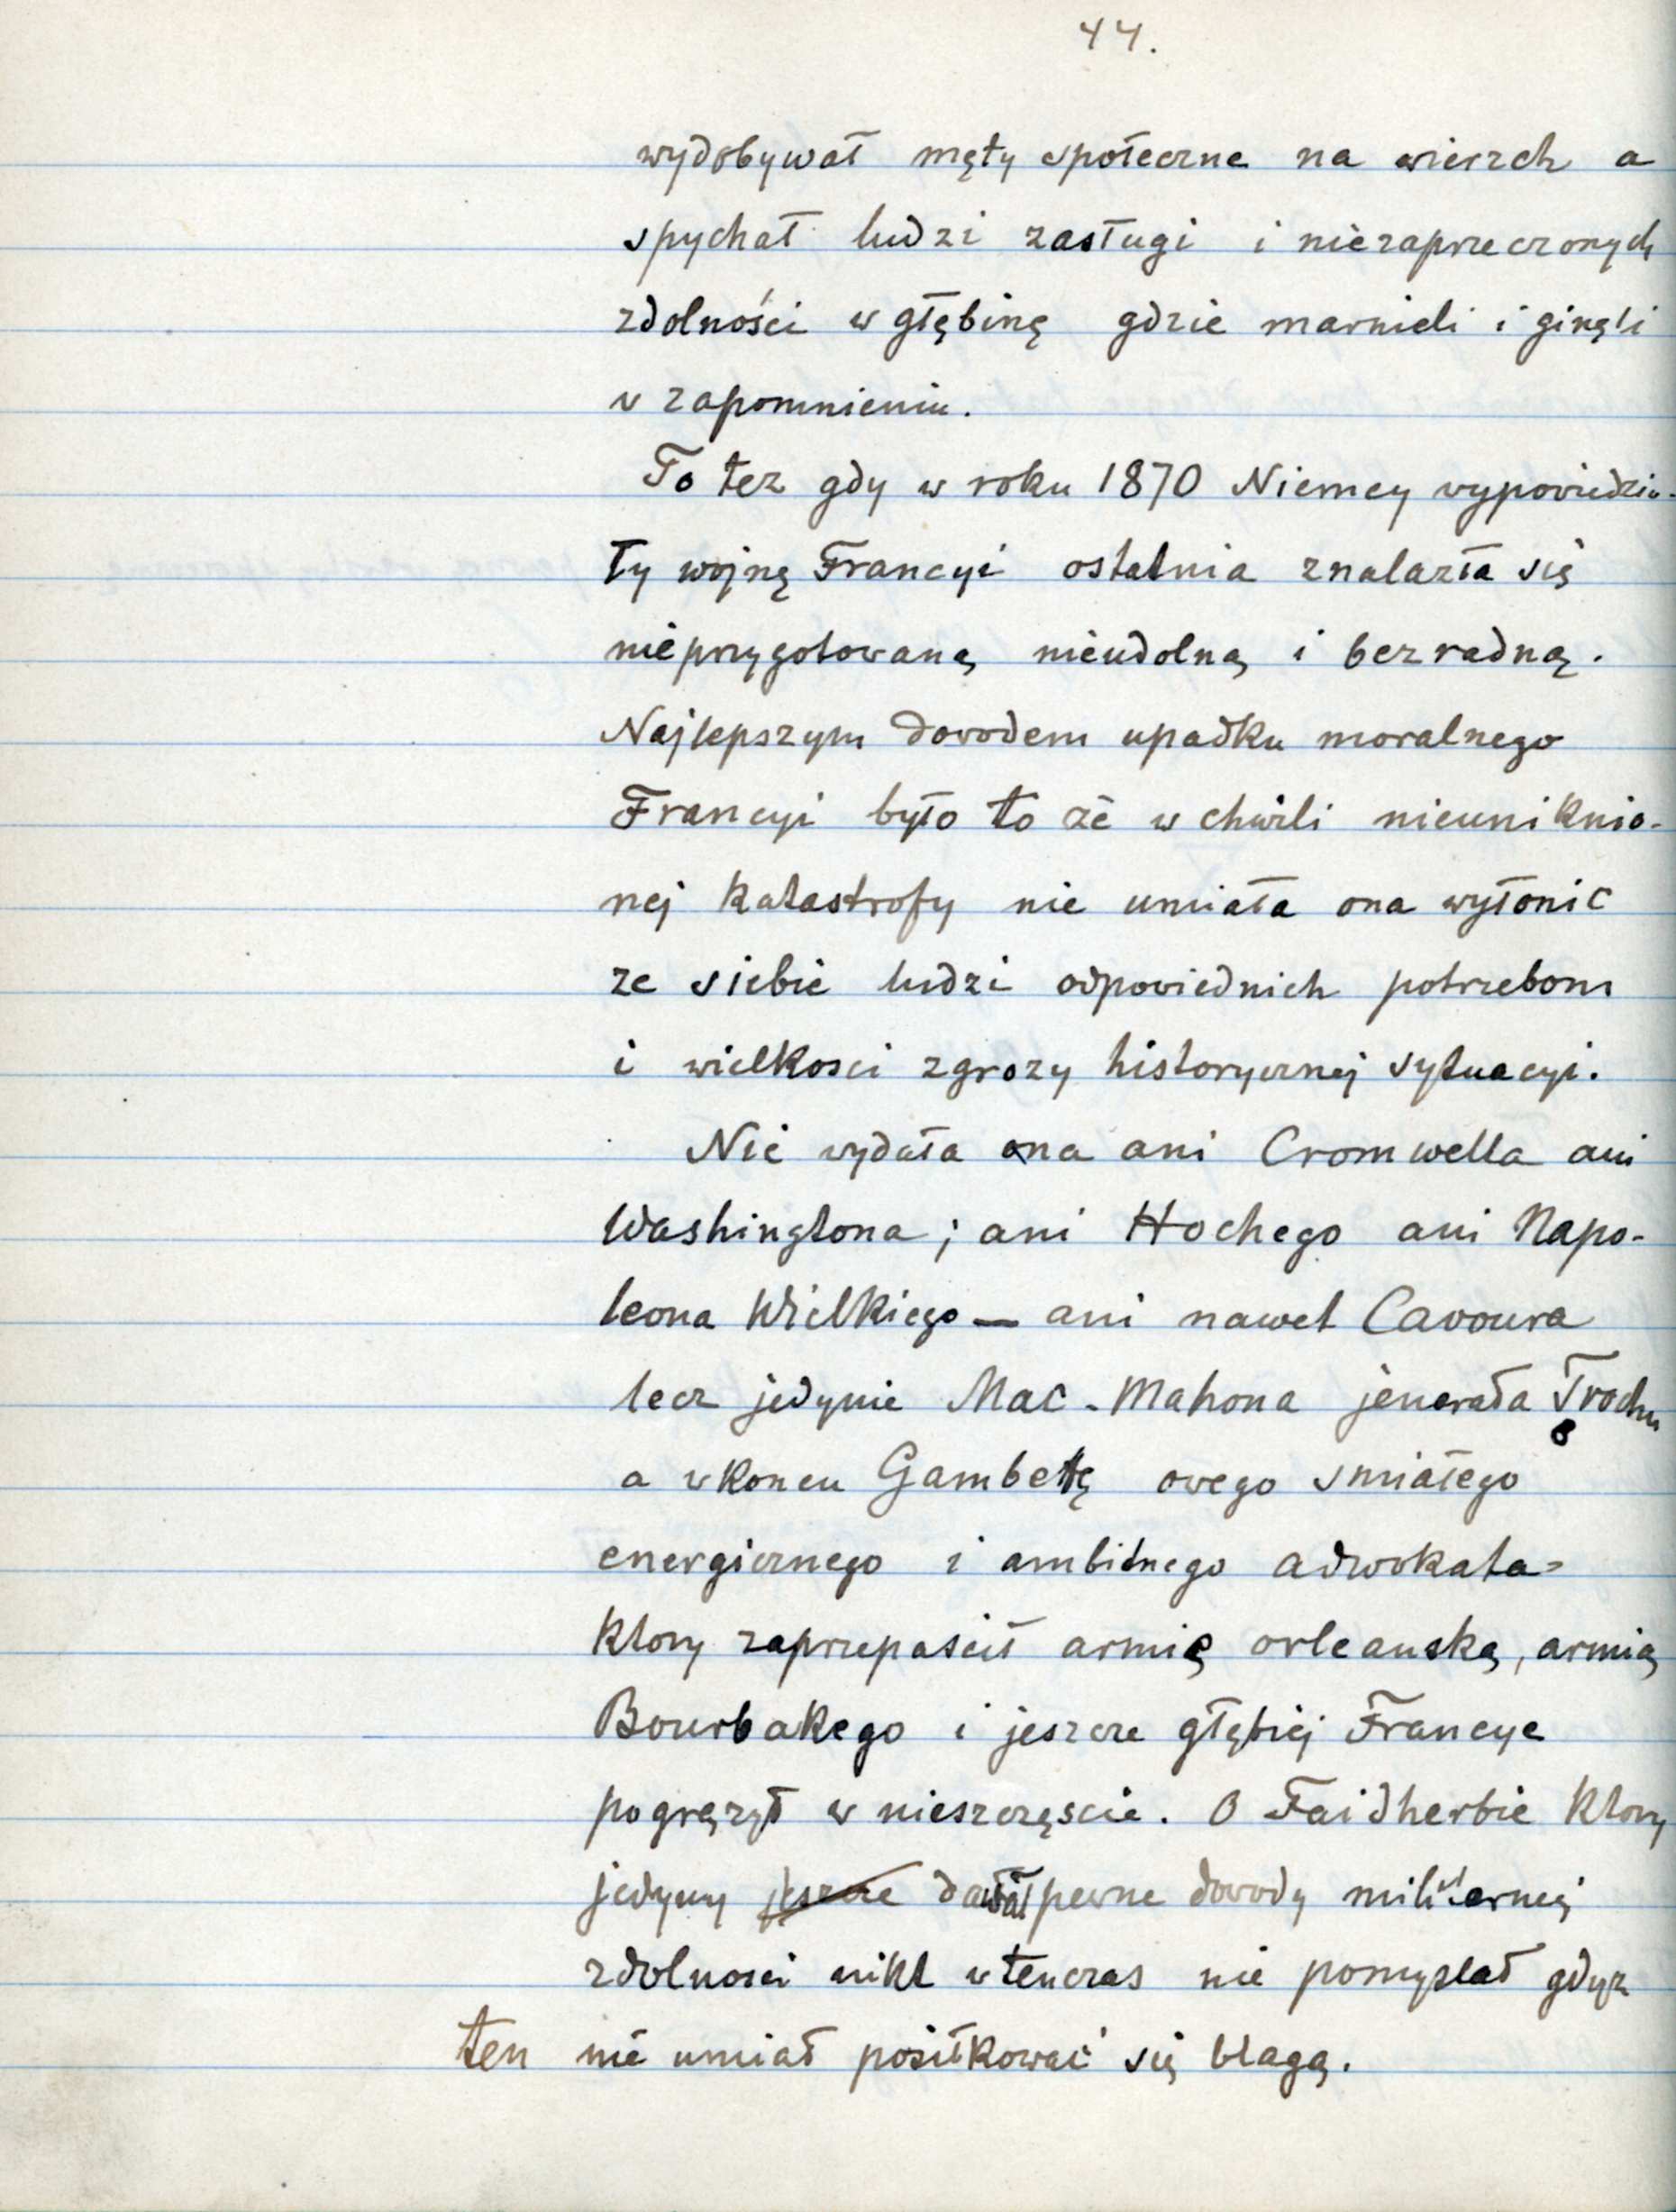 44.
wydobywał męty społeczne na wierzch a
spychał ludzi zasługi i niezaprzeczonych
zdolności w głębinę gdzie marnieli i ginęli
w zapomnieniu.
To tez gdy w roku 1870 Niemcy wypowiedzia-
ły wojnę Francyi ostatnia znalazła się
nieprzygotowaną nieudolną i bezradną.
Najlepszym dowodem upadku moralnego
Francyi było to że w chwili nieuniknio-
nej katastrofy nie umiała ona wyłonic
ze siebie ludzi odpowiednich potrzebom
i wielkosci zgrozy historycznej sytuacyi.
Nie wydała ona ani Cromwella ani
Washingtona; ani Hochego ani Napo-
leona Wielkiego — ani nawet Cavoura
lecz jedynie Mac-Mahona jenerała Trochu
a wkoncu Gambettę owego smiałego
energicznego i ambitnego adwokata-
ktory zaprzepaścił armię orleanską, armię
Bourbakego i jeszcze głębiej Francye
pogrążył w nieszczęscie. O Faidherbie ktory
jedyny jeszcze dawał pewne dowody militarnej
zdolnosci nikt wtenczas nie pomyslał gdyz
ten nie umiał posiłkować się blagą.